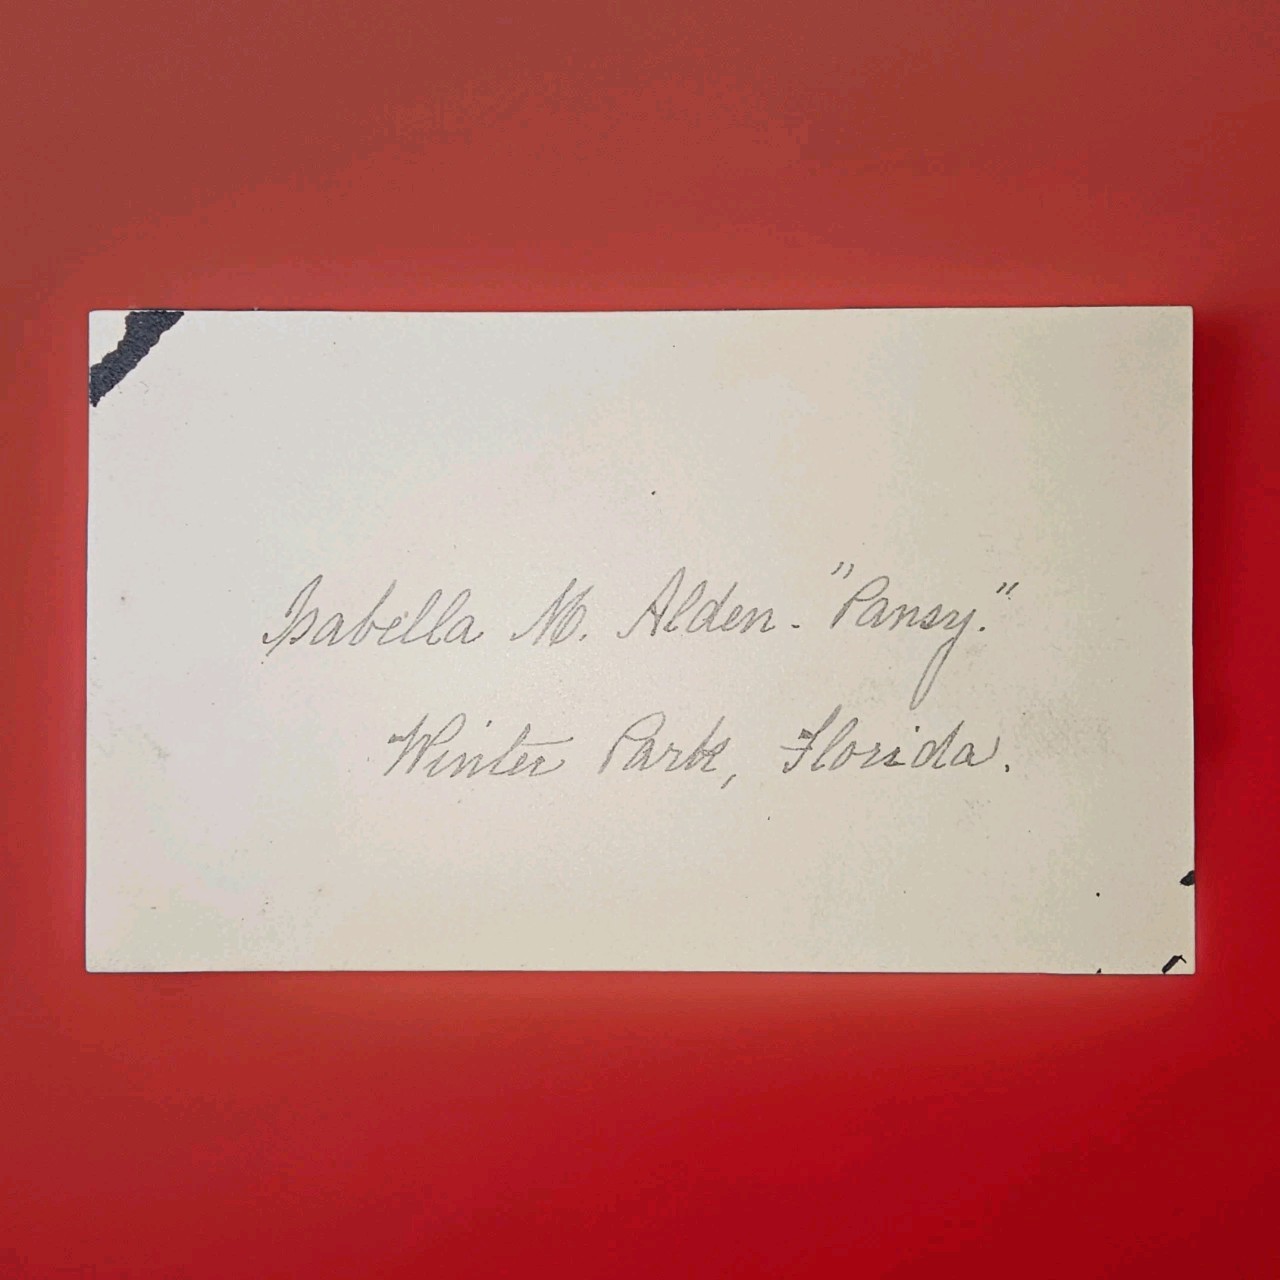 Isabella M. Alden. "Pansy."
Winter Park, Florida.